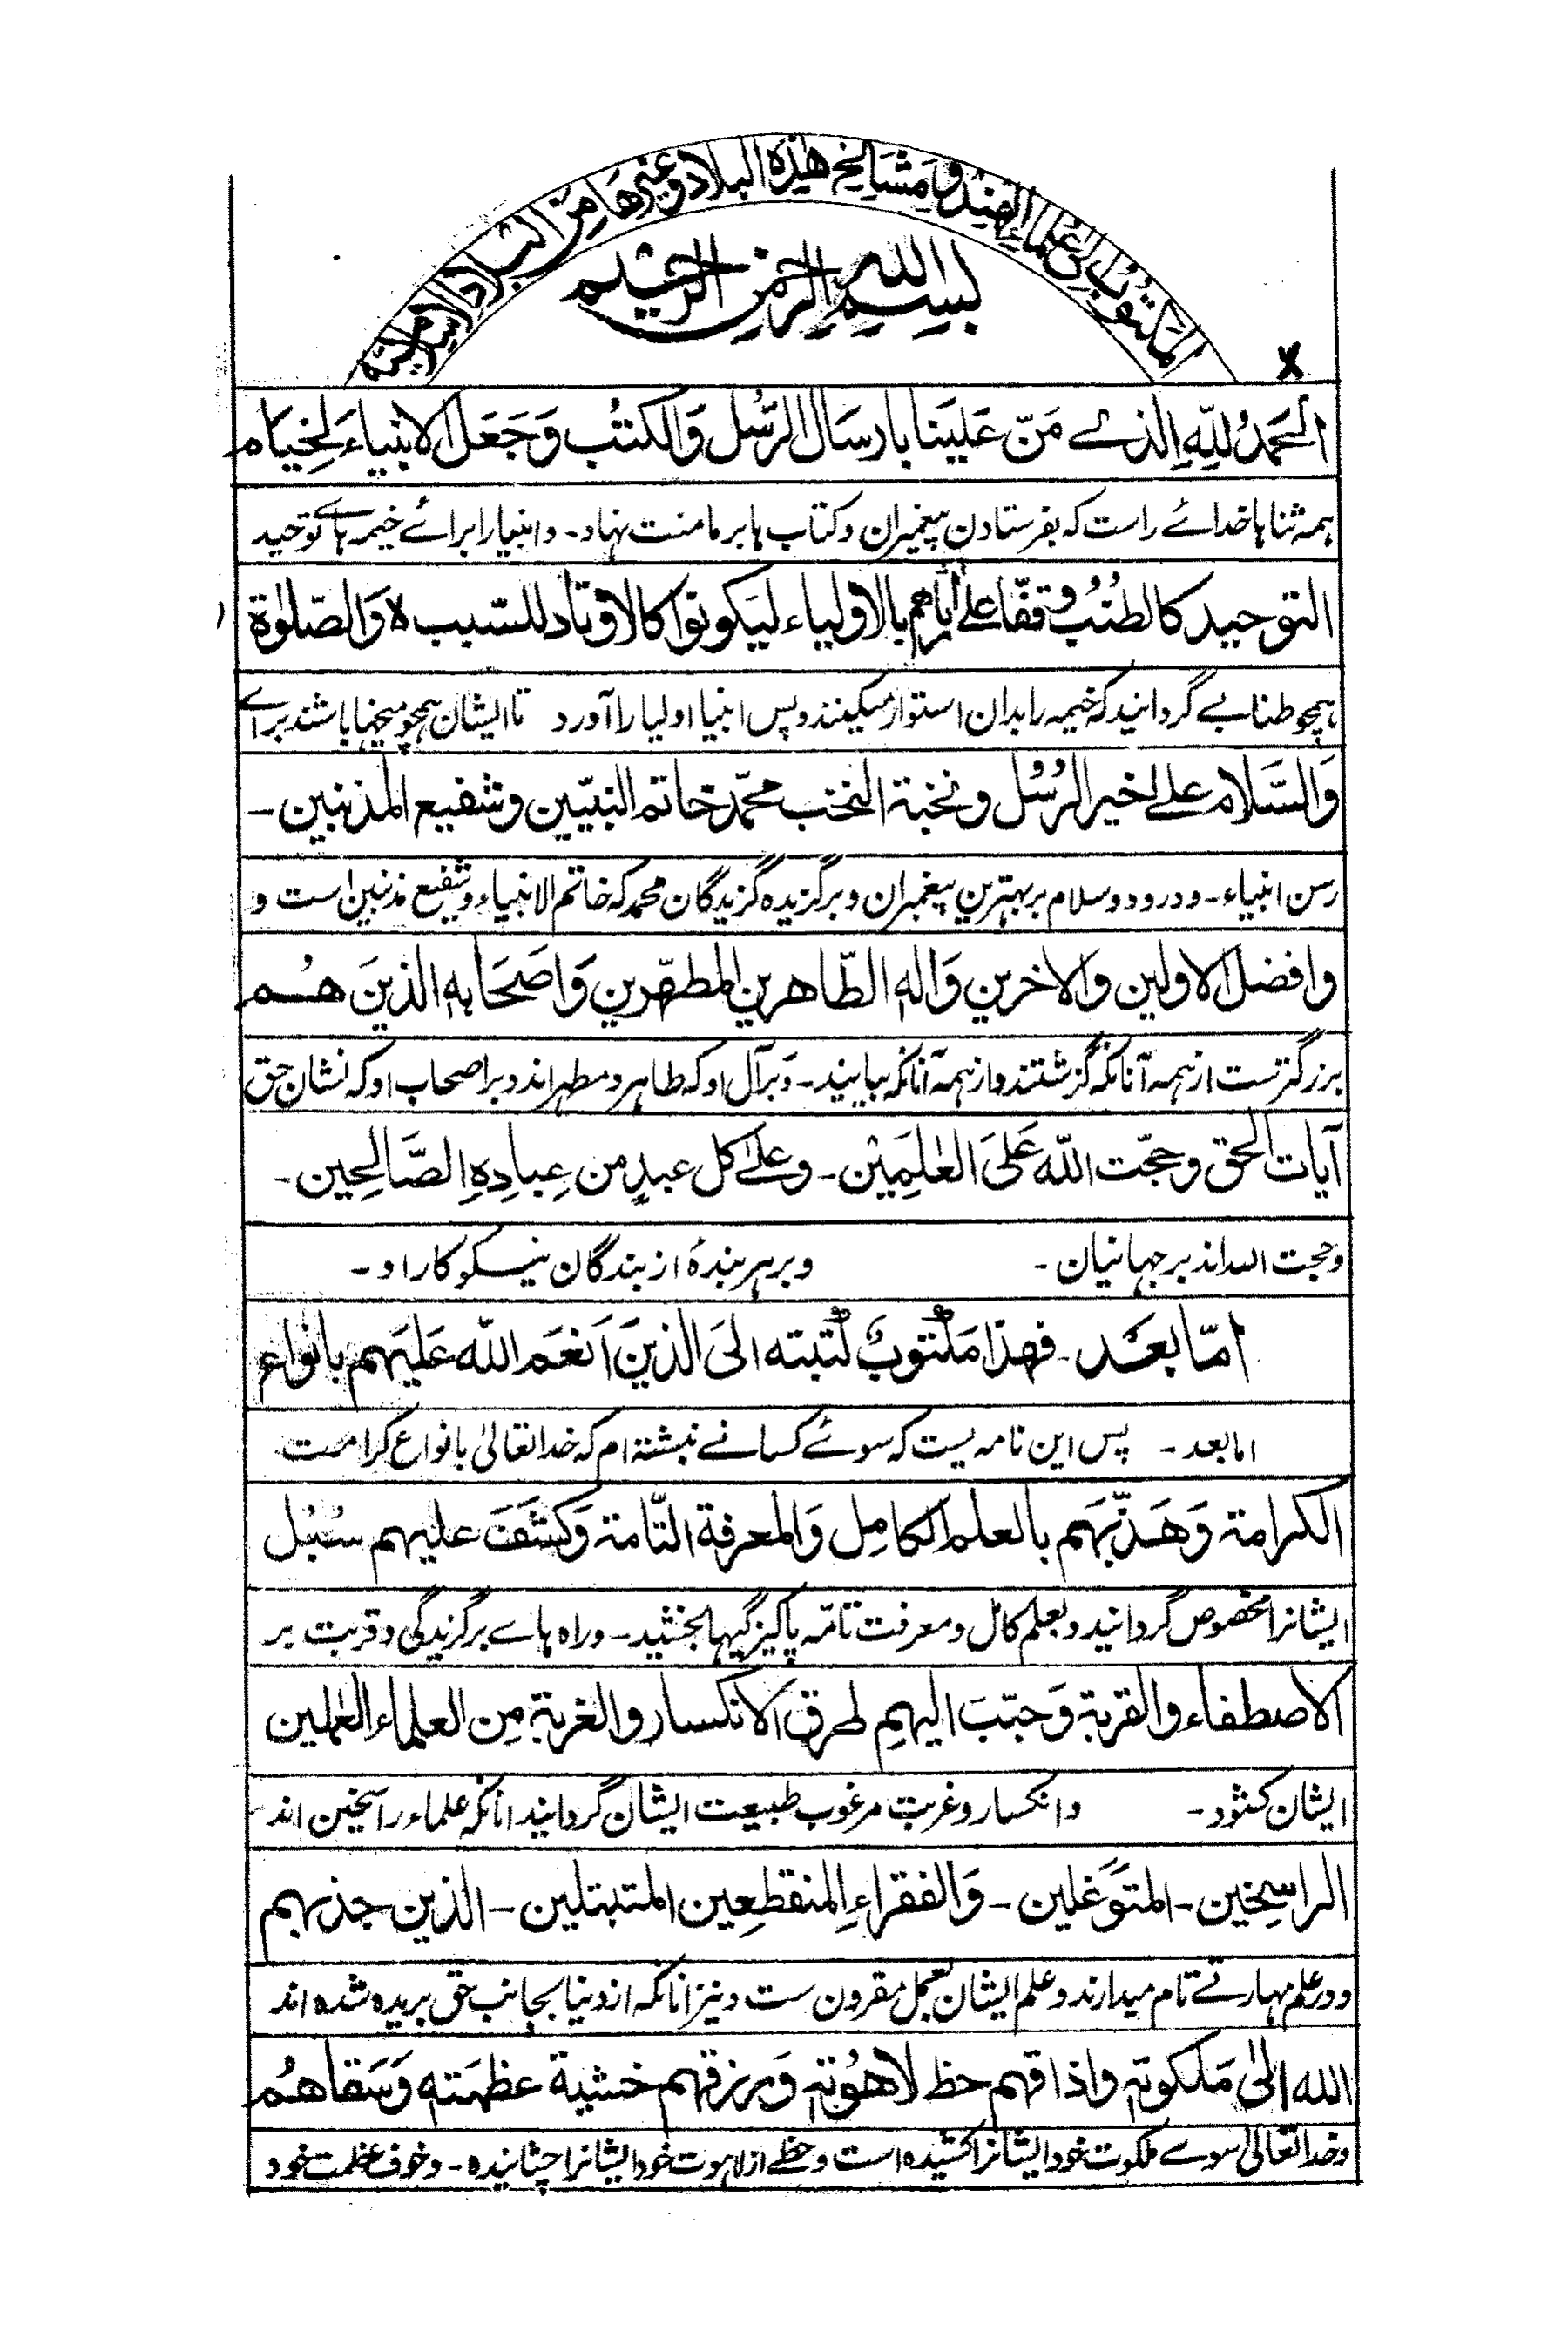 المكتوب الى علماء الهند ومشائخ هذه البلاد وغيرها من البلاد الاسلامية
بسم الله الرحمن الرحيم
الحَمدُ لِلّهِ الذے مَنّ عَلَينَا بارسَال الرُّسُل وَالكتُب وَجَعَل الانبياءَ لِخيَام
ہمہ ثناہا خدائے راست کہ بفرستادن پیغمبران و کتاب ہا بر ما منت نہاد۔ و انبیا را برائے خیمہ ہائے توحید
التوحيد كالطُنُب وقفّا على اٰثارهم بالاولياء ليَكونوا كالاوتاد للسّبب ہ وَالصّلوٰة
ہمچو طنابے گردانید کہ خیمہ را بدان استوار میکنند و پس انبیا اولیا را آورد تا ایشان ہمچو میخہا باشند برائے
وَالسَّلام علے خير الرُسُل ونخبة النخب محمّد خاتم النبيّين وشفيع المذنبين ۔
رسن انبیاء۔ و درود و سلام بر بہترین پیغمبران و برگزیدہ گزیدگان محمد کہ خاتم الانبیاء و شفیع مذنبین است و
وافضل الاولين والاخرين وَاٰله الطّاهرين المطهّرين وَاصحَابه الذينَ هُم
بزرگترست از ہمہ آنانکہ گزشتند و از ہمہ آنانکہ بیایند۔ و بر آل او کہ طاہر و مطہر اند و بر اصحاب او کہ نشان حق
آيات الحق وحجّت اللّه عَلىَ العٰلَمِيْن۔ وعلے كل عبدٍ من عِبادِهِ الصَّالحِين۔
و حجت اللہ اند بر جہانیان۔ و بر ہر بندۂ از بندگان نیکوکار او۔
امّا بعَد۔ فهذا مَكْتوبٌ كتبته الىَ الذينَ اَنعَمَ اللّه عَليَهم بانواع
اما بعد۔ پس این نامہ یست کہ سوئے کسانے نبشتہ ام کہ خدا تعالیٰ بانواع کرامت
الكرامة وَهَذّبَهم بالعلم الكامِل وَالمعرفة التّامة وَكشَفَ عليهم سُبُل
ایشانرا مخصوص گردانید و بعلم کامل و معرفت تامّہ پاکیزگیہا بخشید۔ و راہ ہائے برگزیدگی و قربت بر
الاصطفاء والقربة وَحبّبَ اليهِم طرق الانكسار والغربة مِن العلماء العٰملين
ایشان کشود۔ و انکسار و غربت مرغوب طبیعت ایشان گردانید انانکہ علماء راسخین اند
الراسِخين۔ المتوَغلين۔ وَالفقراءِ المنقطِعين المتبتلين۔ الذين جذبهم
و در علم مہارتے تام میدارند و علم ایشان بعمل مقرون ست و نیز انانکہ از دنیا بجانب حق بریدہ شدہ اند
الله الىٰ مَلكوته واذاقهم حظ لاهُوته وَرزقهم خشية عظمَته وَسَقاهُم
و خدا تعالیٰ سوئے ملکوت خود ایشانرا کشیدہ است و حظے از لاہوت خود ایشانرا چشانیدہ۔ و خوف عظمت خود